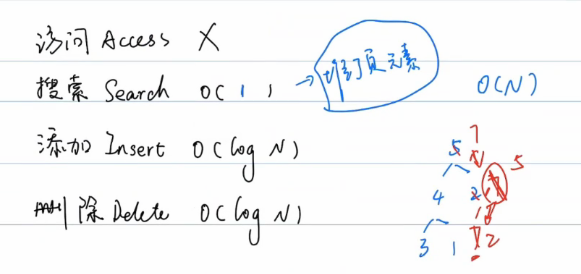 访问 Access X
搜索 Search O(1) → 堆顶元素 O(N)
添加 Insert O(log N)
删除 Delete O(log N)
7
5 N 5
4 2
3 1 2